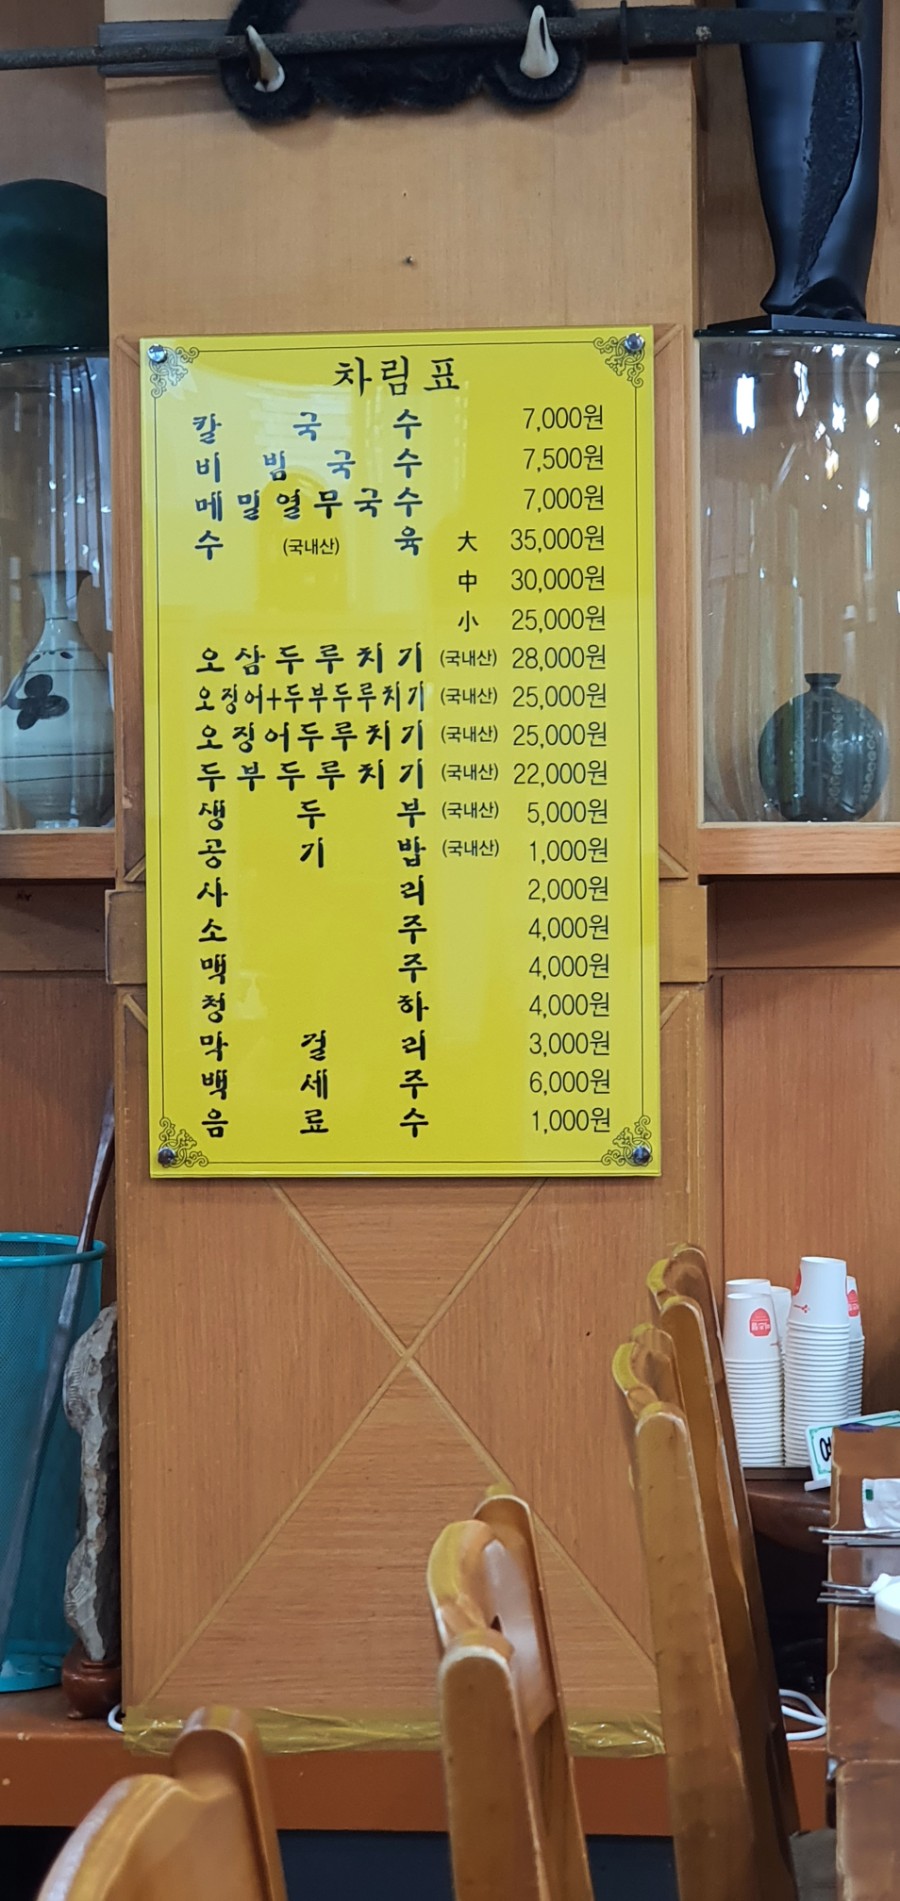 차림표
칼국수 7,000원
비빔국수 7,500원
메밀열무국수 7,000원
수(국내산)육 大 35,000원
中 30,000원
小 25,000원
오삼두루치기 (국내산) 28,000원
오징어+두부두루치기 (국내산) 25,000원
오징어두루치기 (국내산) 25,000원
두부두루치기 (국내산) 22,000원
생두부 (국내산) 5,000원
공기밥 (국내산) 1,000원
사리 2,000원
소주 4,000원
맥주 4,000원
청하 4,000원
막걸리 3,000원
백세주 6,000원
음료수 1,000원